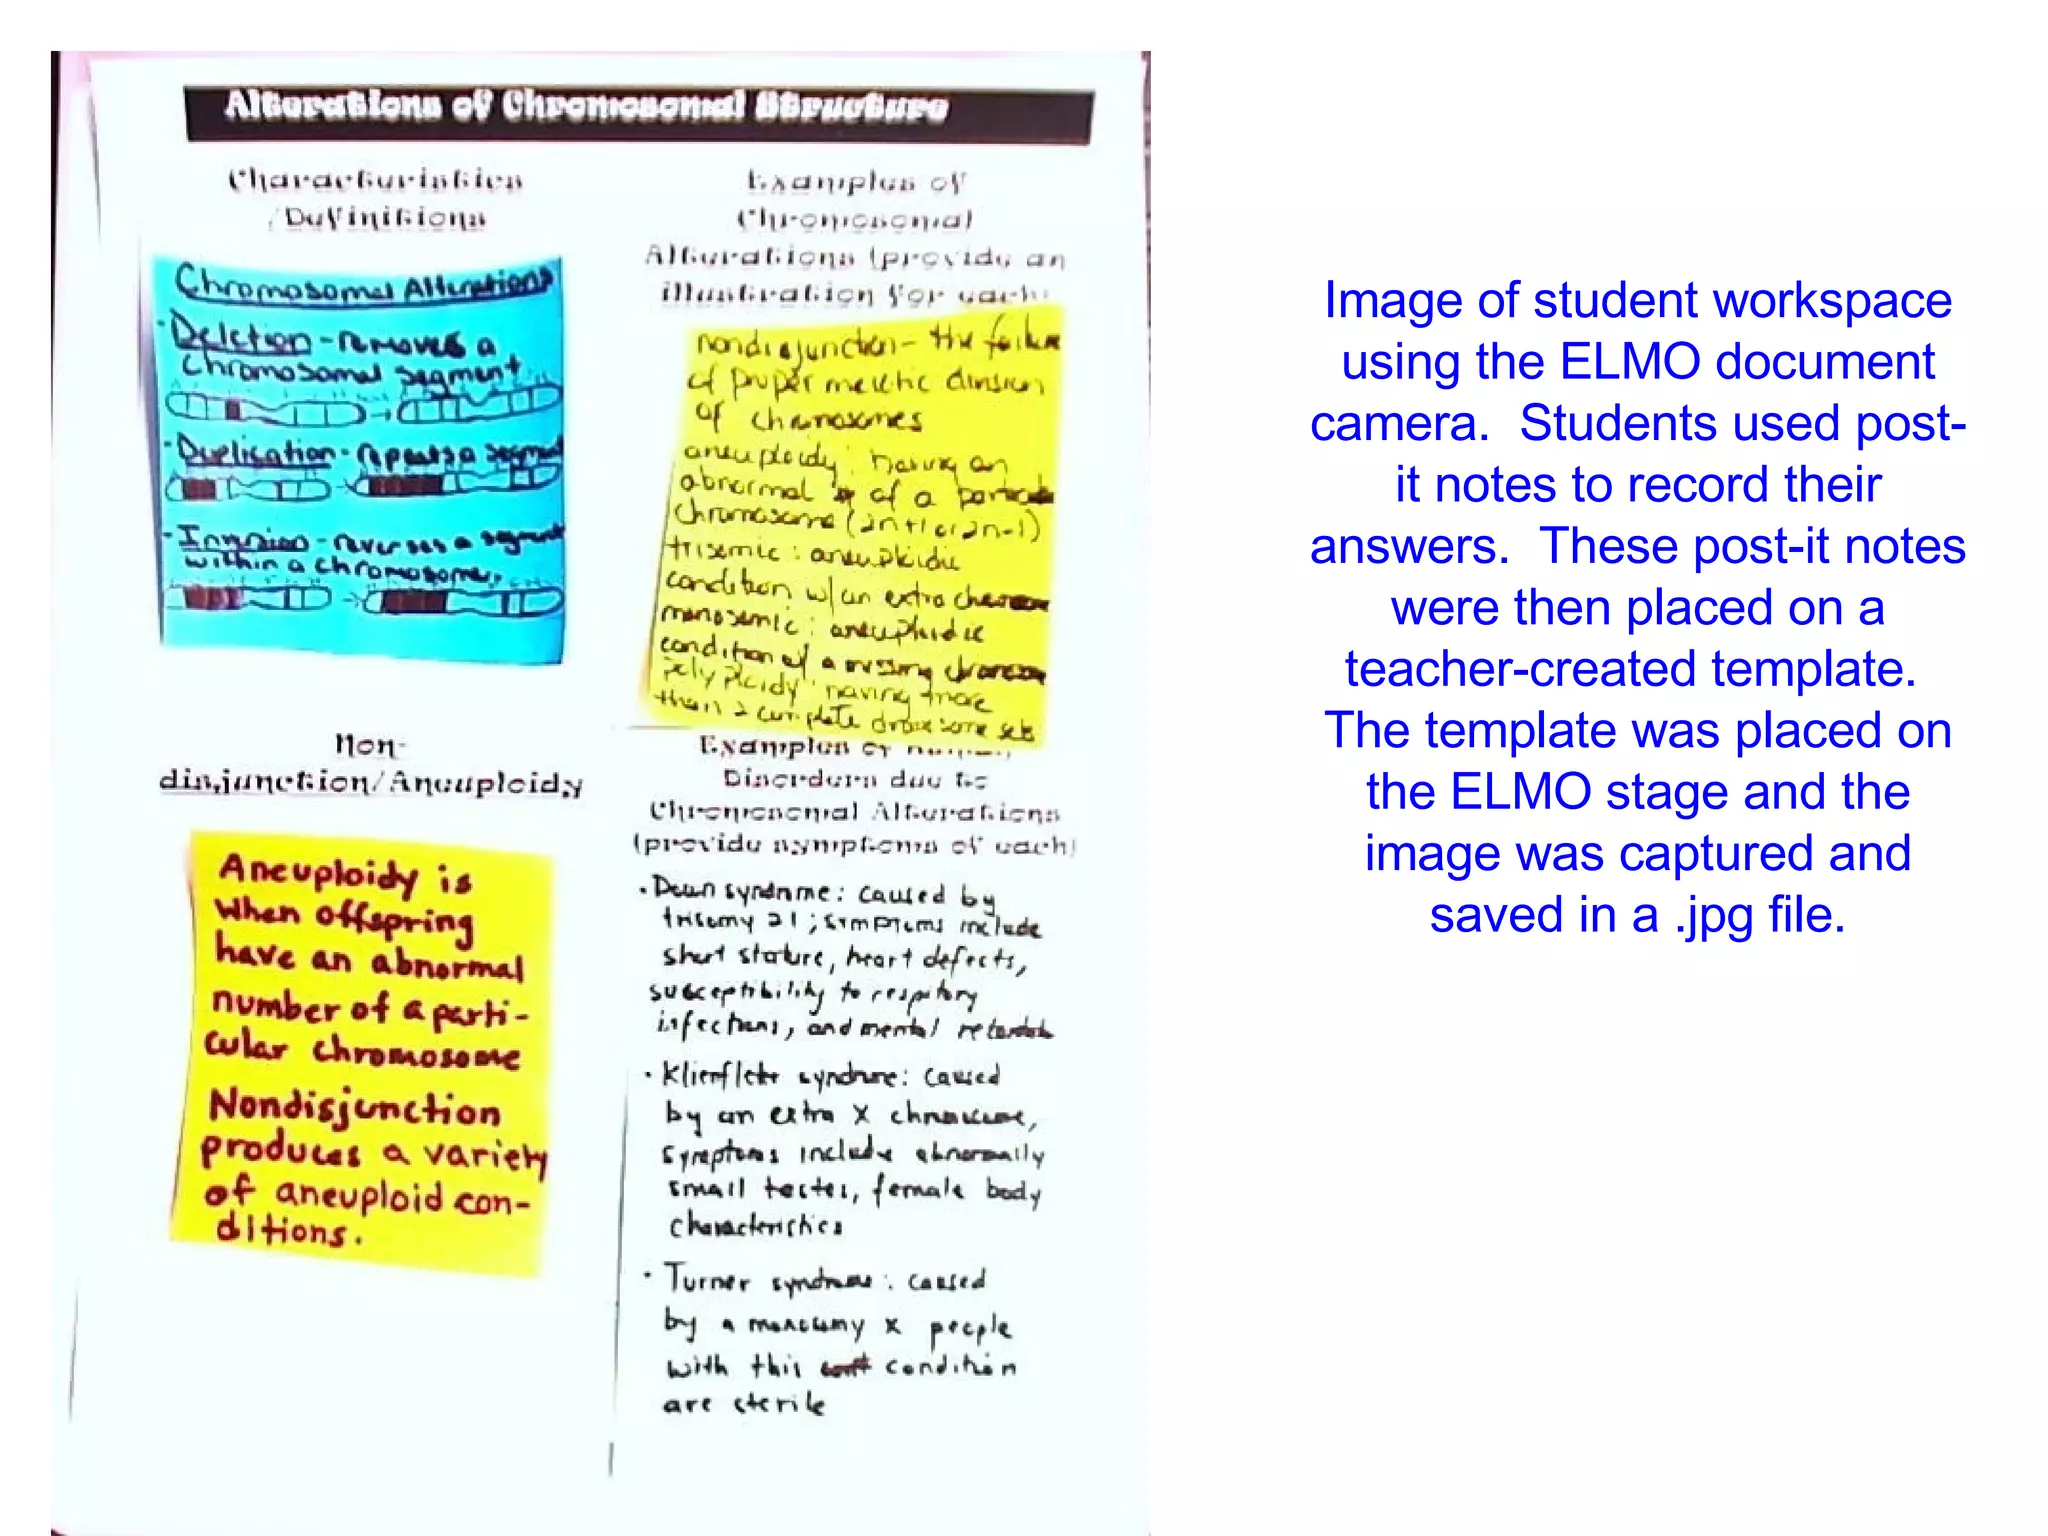 Alterations of Chromosomal Structure
Characteristics
/Definitions
Chromosomal Alterations
·Deletion - removes a
chromosomal segment
·Duplication - repeats a segment
·Inversion - reverses a segment
within a chromosome.
Examples of
Chromosomal
Alterations (provide an
illustration for each)
nondisjunction - the failure
of proper meiotic division
of chromosomes
aneuploidy: having an
abnormal # of a particular
chromosome (2n+1 or 2n-1)
trisomic: aneuploidic
condition w/an extra
monosomic: aneuploidic
condition w/ a missing
polyploidy: having more
than 2 complete chromosome sets
Non-
disjunction/Aneuploidy
Aneuploidy is
when offspring
have an abnormal
number of a parti-
cular chromosome
Nondisjunction
produces a variety
of aneuploid con-
ditions.
Examples of Human
Disorders due to
Chromosomal Alterations
(provide symptoms of each)
·Down syndrome: caused by
trisomy 21; symptoms include
short stature, heart defects,
susceptibility to
infections, and mental
· syndrome: caused
by an extra X chromosome,
symptoms include abnormally
small testes, female body
characteristics
·Turner syndrome: caused
by a monosomy X people
with this condition
are sterile
Image of student workspace
using the ELMO document
camera. Students used post-
it notes to record their
answers. These post-it notes
were then placed on a
teacher-created template.
The template was placed on
the ELMO stage and the
image was captured and
saved in a .jpg file.